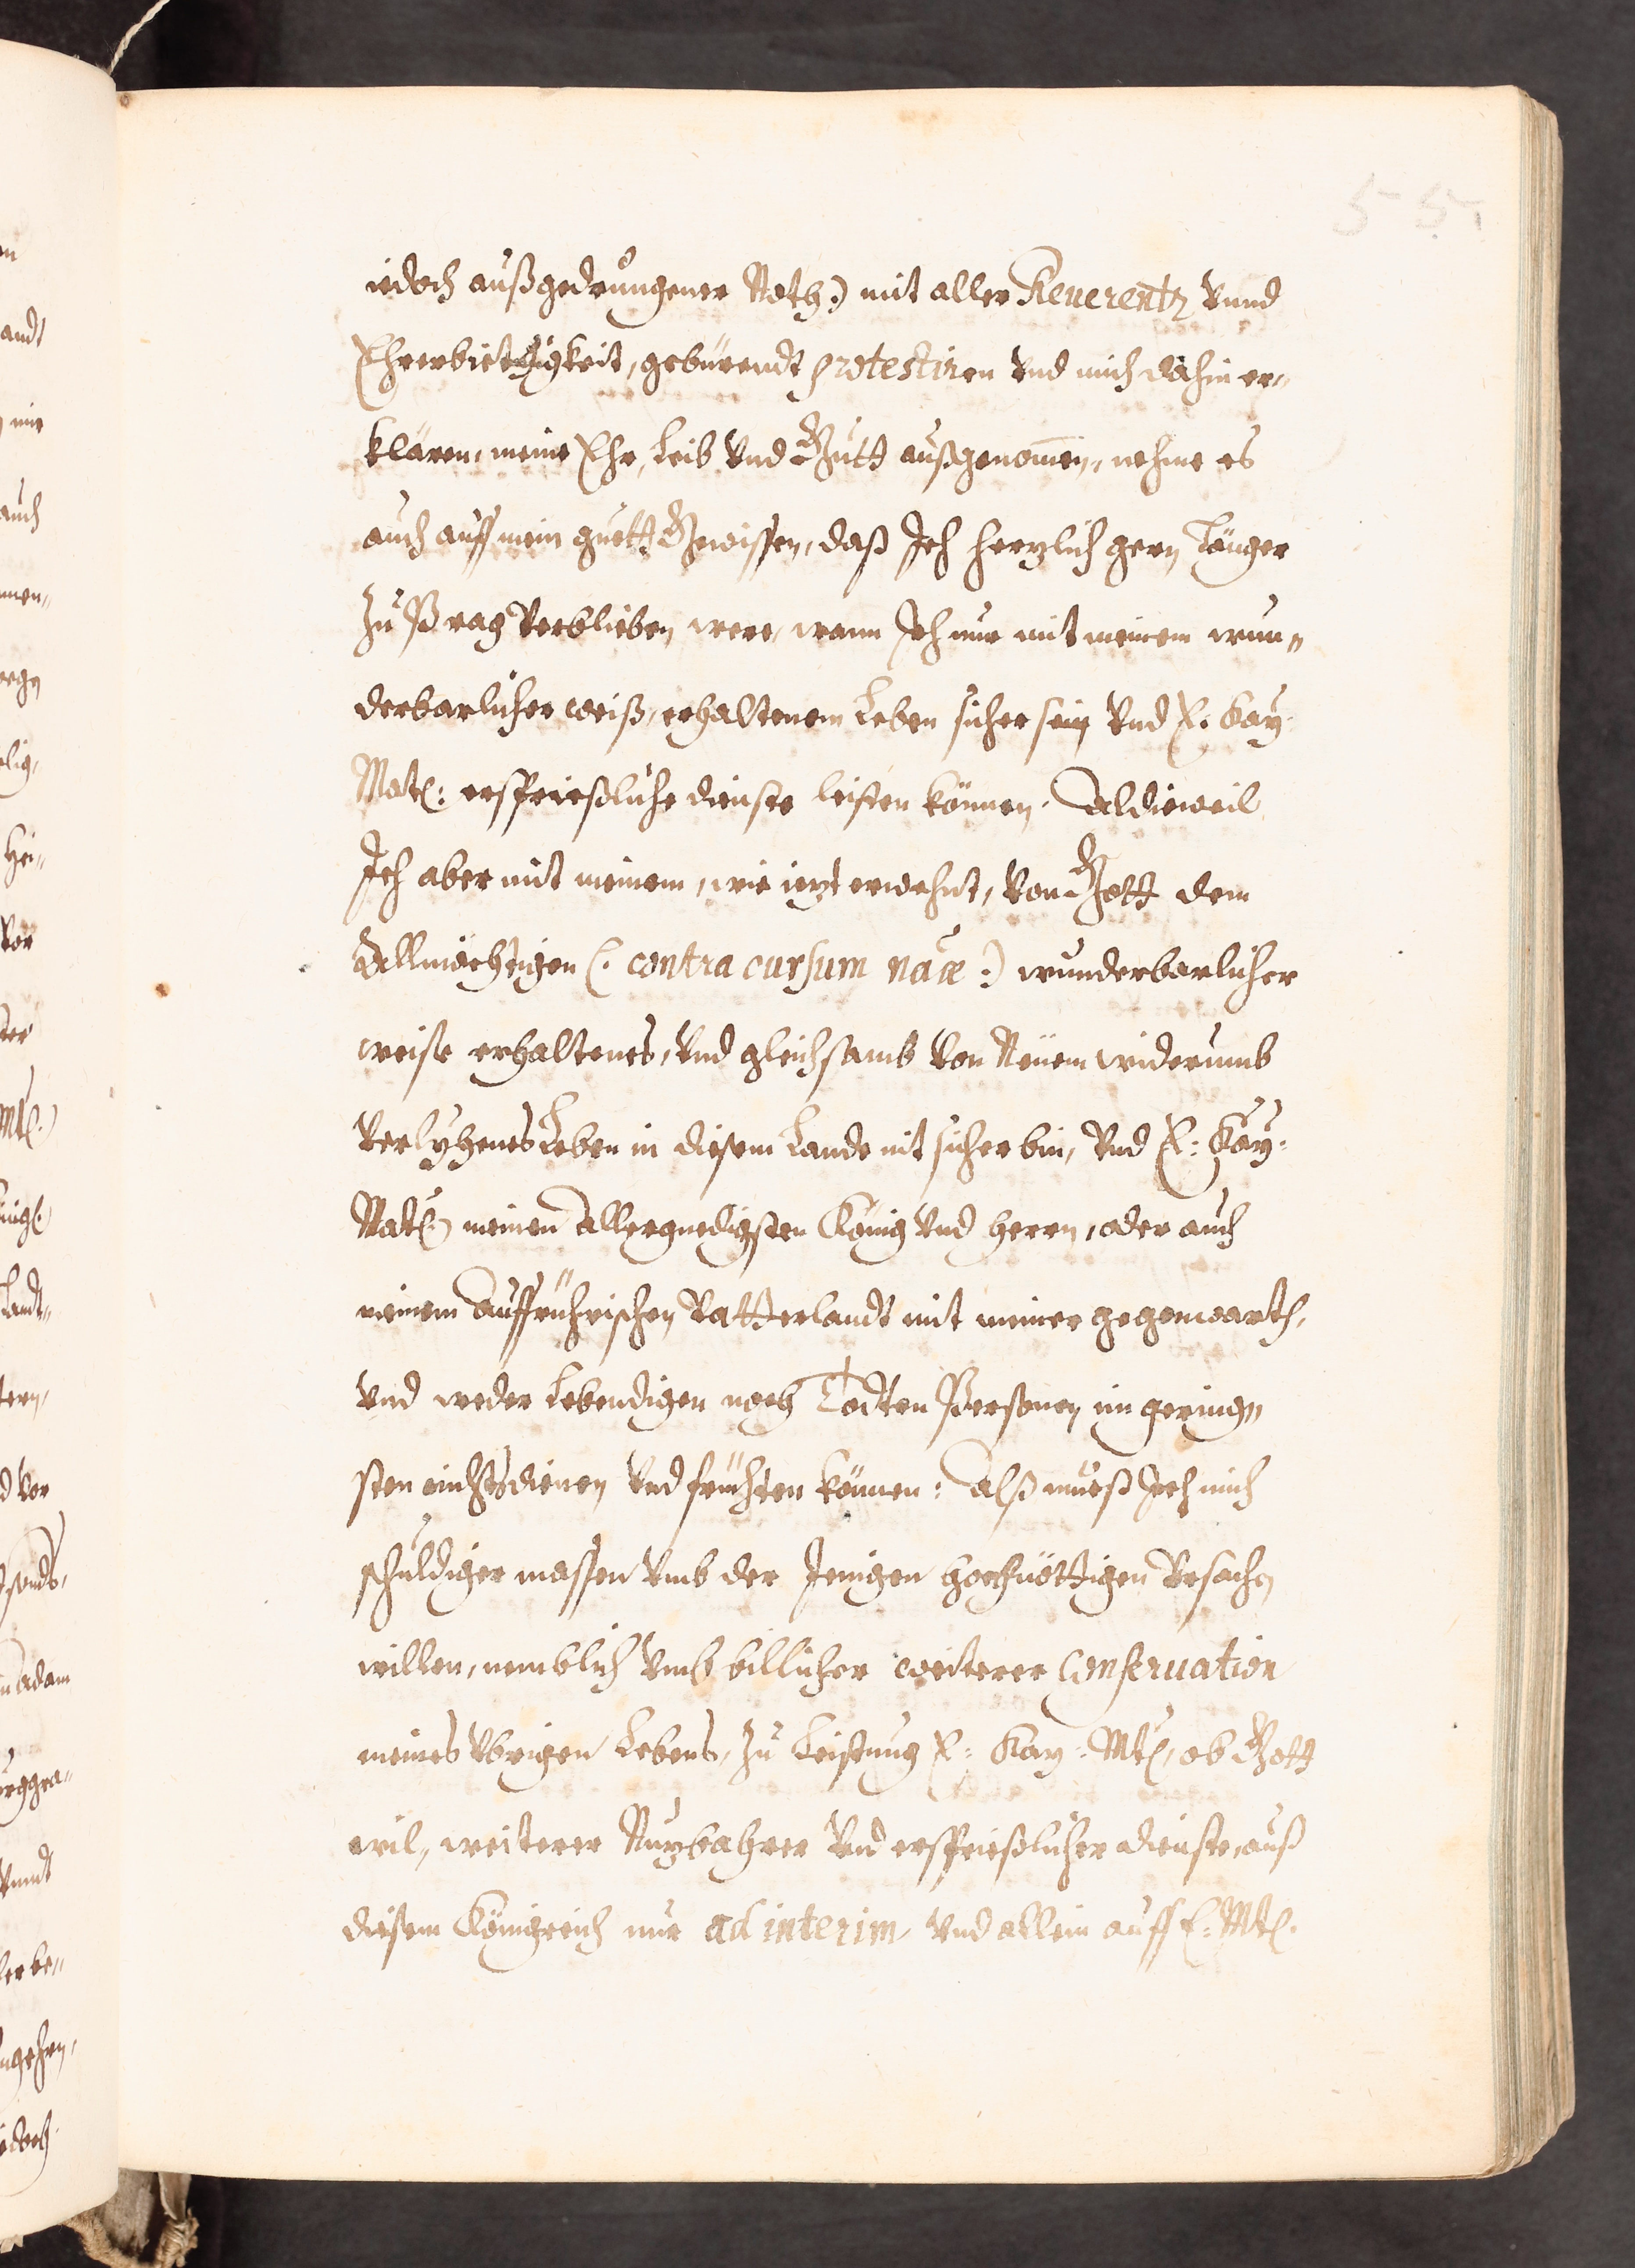 55.
iedoch außgedrungener Noth:) mit aller Reuerentz vnnd
Ehrerbiettigkeit, gebürendt protestiren vnd mich dahin er„
klären, meine Ehr, Leib vnd Gutt außgenom̄en, nehme es
auch auff mein guett Gewissen, daß Ich herzlich gern Länger
Zu Prag verblieben were, wann Ich nur mit meinem wun„
derbarlicher weiß, erhaltenem Leben sicher sein vnd E: Kay:
Matt: ersprießliche dienste leisten können. Aldieweil
Ich aber mit meinem, wie iezt erwehnt, von Gott dem
Allmächtigen (: contra cursum naae :) wunderbarlicher
weise erhaltenes, vnd gleichsamb von Neüem widerumb
verlyhenes Leben in diesem Lande nit sicher bin, vnd E: Kay:
Matt: meinen Allergnedigsten König vnd Herrn, oder auch
meinem Auffrührischen Vatterlandt mit meiner gegenwarth,
vnd weder Lebendigen noch Todten Persohnen im gering„
sten nichts dienen vnd früchten können: Alß mueß Ich mich
schuldiger massen vmb der Jenigen hochnöttigen Vrsachen
willen, nemblich vmb billicher weiterer Conseruation
meines vbrigen Lebens, Zu Leistung E: Kay: Mtt, ob Gott
wil, weiterer Nuzbahrer vnd ersprießlicher dienste, auß
diesem Königreich nur ad interim, vnd allein auff E: Mtt.
andt
mir
auch
Hei„
vor
Mtt.
Landt„
tern,
d vor
Adam
urggra„
vnndt
er be„
iedoch